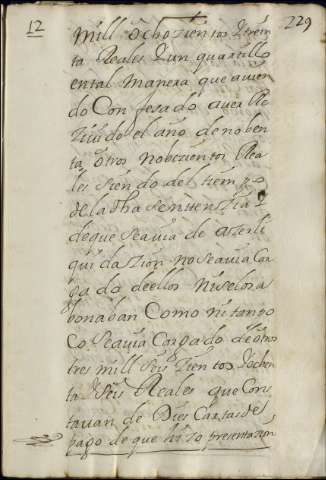 12
229
mill ochozientos Y trein
ta Reales Y un quartillo
en tal manera que avien
do Confesado aver Re
zivido el año de noben
ta otros Reales
siendo del tiempo
de la dha
de que se avia de azer li
quidazion no se avia Car
gado de ellos ni se lo ha
bonaban Como ni tanpo
co se avia Cargado de otros
tres mill seis zientos Y ochen
ta Y seis Reales que Cons
tavan de Diez Cartas de
pago de que hizo presentazion